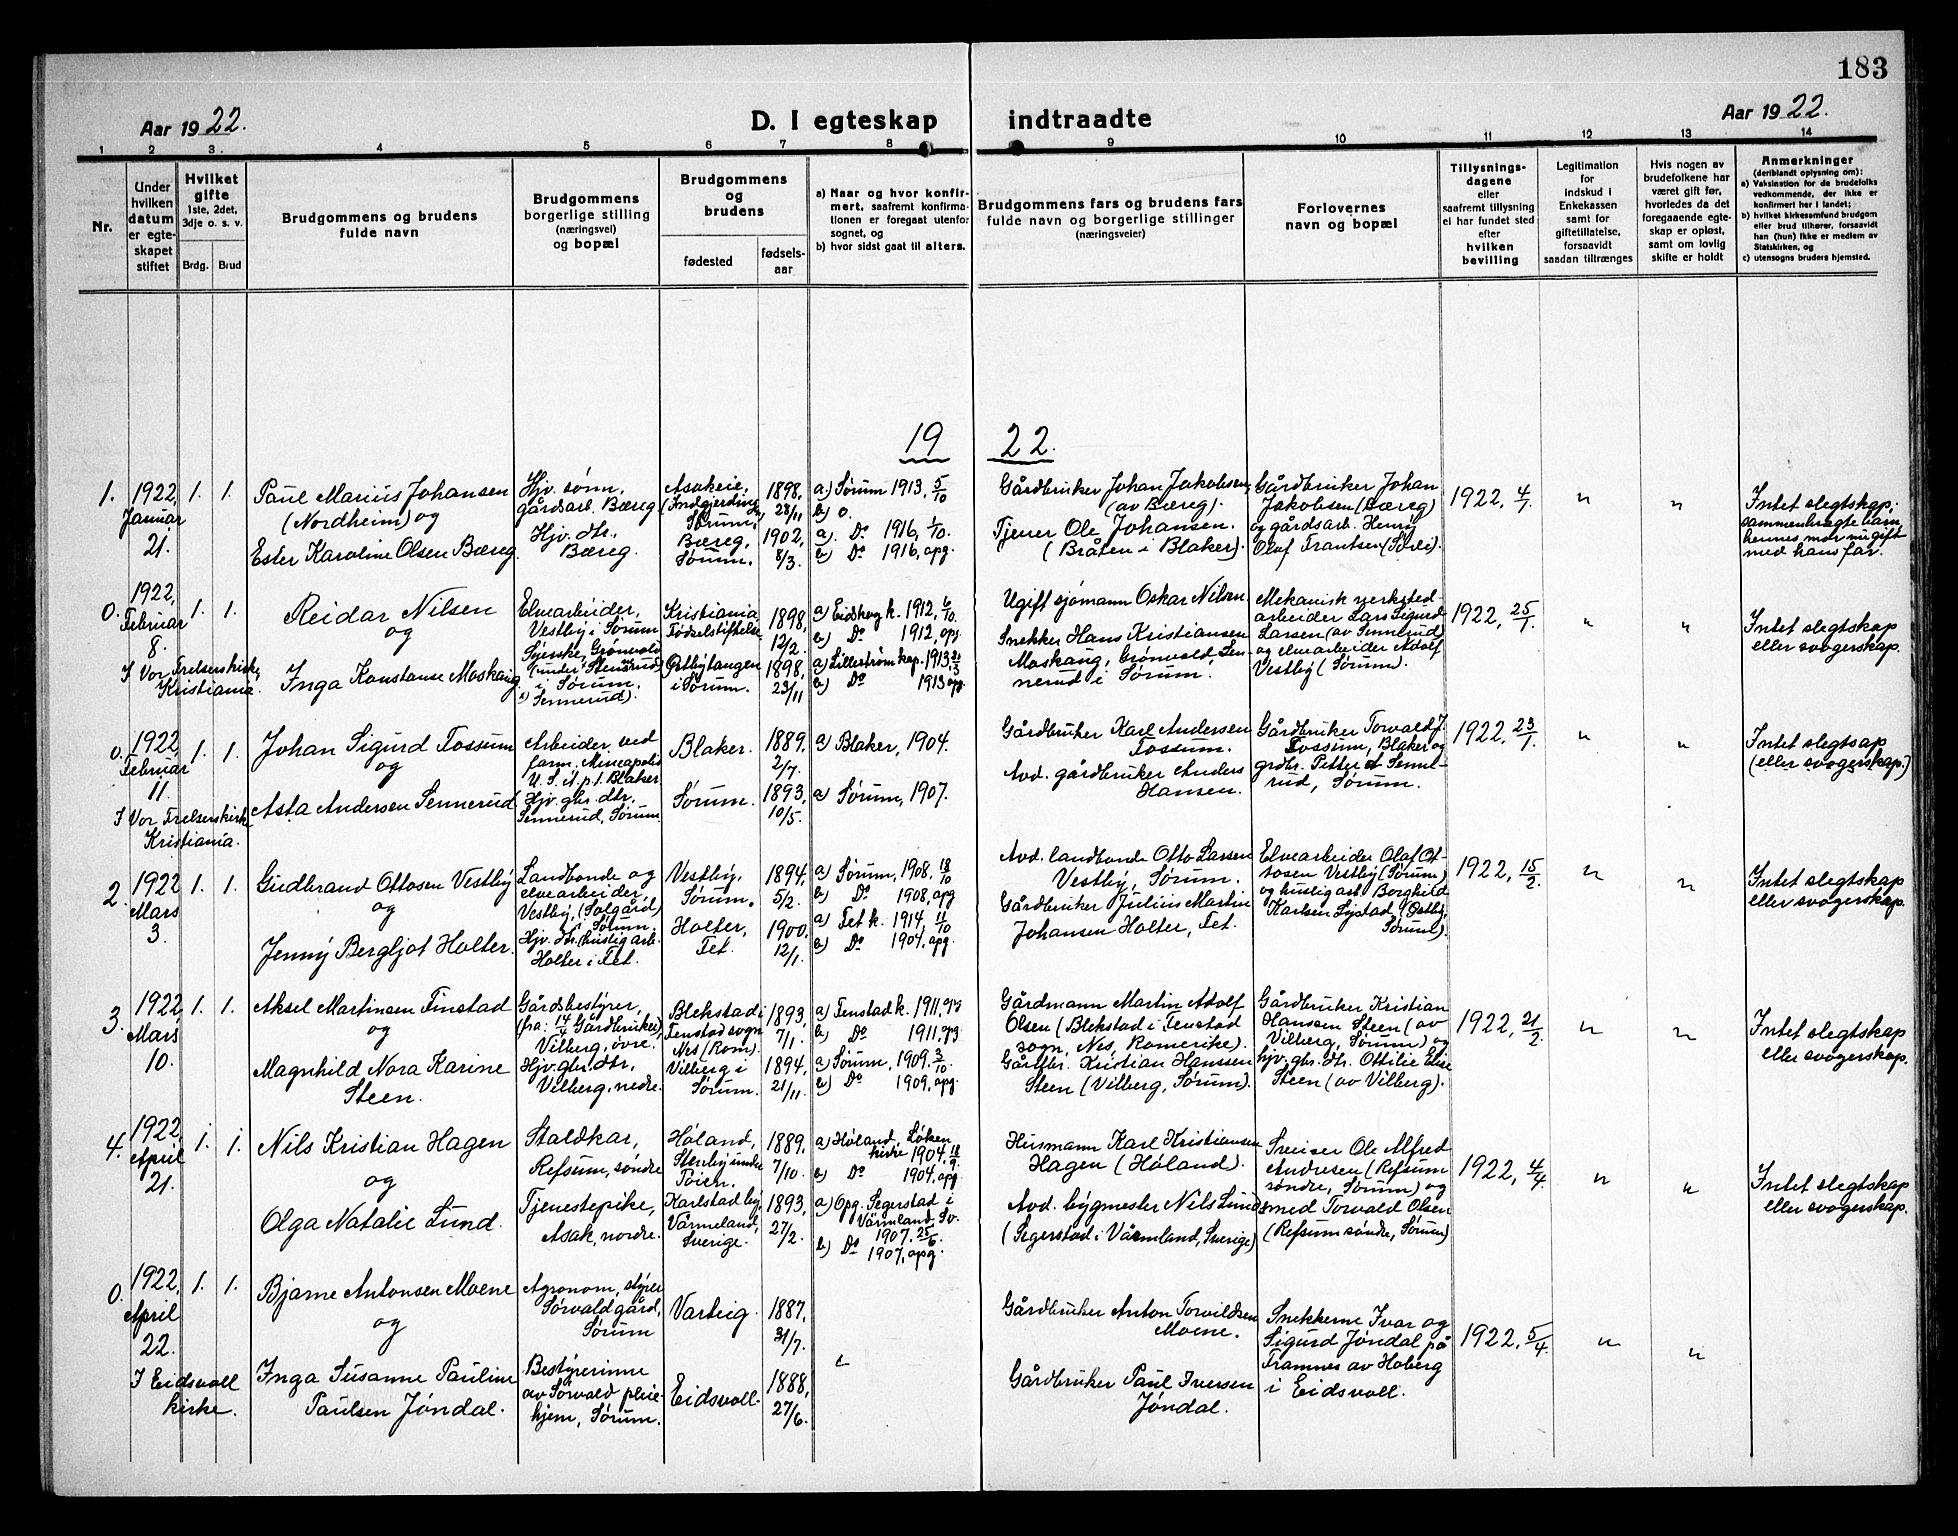 183
Aar 1922.
D. I egteskap indtraadte
Aar 1922.
1 2 3. 4 5 6 7 8 9 10 11 12 13 14
Nr.
Under hvilken datum er egteskapet stiftet
Hvilket gifte
1ste, 2det, 3dje o. s. v.
Brdg. Brud
Brudgommens og brudens fulde navn
Brudgommens borgerlige stilling (næringsvei) og bopæl
Brudgommens og brudens
fødested
fødselsaar
a) Naar og hvor konfirmert, saafremt konfirmationen er foregaat utenfor sognet, og
b) hvor sidst gaat til alters.
Brudgommens fars og brudens fars fulde navn og borgerlige stillinger (næringsveier)
Forlovernes navn og bopæl
Tillysningsdagene eller saafremt tillysning ei har fundet sted efter hvilken bevilling
Legitimation for indskud i Enkekassen samt for giftetillatelse, forsaavidt saadan tiltrænges
Hvis nogen av brudefolkene har været gift før, hvorledes da det foregaaende egteskap er opløst, samt om lovlig skifte er holdt
Anmerkninger
(deriblandt oplysning om):
a) Vaksination for de brudefolks vedkommende, der ikke er konfirmert her i landet;
b) hvilket kirkesamfund brudgom eller brud tilhører, forsaavidt han (hun) ikke er medlem av Statskirken, og
c) utensogns bruders hjemsted.
19 22.
1. 1922, Januar 21. 1. 1.
Paul Marius Johansen
(Nordheim) og
Ester Karoline Olsen Bæreg.
Hjv. sønn,
gårdsarb. Bæreg
Hjv. dtr.
Bæreg.
Asakeie,
Sørum.
Bæreg,
Sørum.
1898, 28/11
1902, 8/3.
a) Sørum 1913, 5/10
b) o.
a. Do 1916, 1/10.
b) Do 1916, opg.
Gårdbruker Johan Jakobsen,
(av Bæreg).
Tjener Ole Johansen.
(Bråten i Blaker).
Gårdbruker Johan
Jakobsen (Bæreg)
og gårdsarb. Henry
Olaf Frantsen (Sørli).
1922, 4/1. " "
Intet slegtskap;
sammenbragte barn,
hennes mor nu gift
med hans far.
0. 1922, Februar 8. 1. 1.
I Vor Frelsers kirke,
Kristiania.
Reidar Nilsen
og
Inga Konstanse Moskaug
Elvearbeider,
Vestby i Sørum
Syerske, Grønvold
(under Stensrud)
i Sørum.
Sennerud).
Kristiania
Fødselstiftelse
Østbytangen
i Sørum.
1898, 12/2
1898, 23/11
a) Eidsberg k. 1912, 6/10.
b) Do 1912, opg.
a) Lillestrøm kap. 1913, 21/3
b) Do 1913 opg.
Ugift sjømann Oskar Nilsen.
Snekker Hans Kristiansen
Moskaug, Grønvold, Sennerud i Sørum.
Mekanisk verkstedarbeider Lars Sigurd
Larsen (av Sennerud)
og elvearbeider Adolf
Vestby (Sørum).
1922, 25/1. " "
Intet slegtskap
eller svogerskap.
0. 1922 Februar 11. 1. 1.
I Vor Frelsers kirke
Kristiania.
Johan Sigurd Fossum
og
Asta Andersen Sennerud
Arbeider ved
farm. Mineapolis
U. S. A. p. t. Blaker
Hjv. gbr. dtr.
Sennerud, Sørum.
Blaker.
Sørum.
1889. 2/7.
1893, 10/5.
a) Blaker, 1904.
a) Sørum, 1907.
Gårdbruker Karl Andersen
Fossum.
Avd. gårdbruker Anders
Hansen.
Gårdbruker Torvald J.
Fossum, Blaker og
grdbr. Petter A Sennerud, Sørum.
1922, 23/1. " "
Intet slegtsap
(eller svogerskap.)
2. 1922 Mars 3. 1. 1.
Gudbrand Ottosen Vestby
og
Jenny Bergljot Holter.
Landbonde og
elvearbeider,
Vestby, (Solgård)
Sørum.
Hjv. dtr. (huslig arb.
Holter i Fet.
Vestby,
Sørum.
Holter,
Fet.
1894, 5/2.
1900. 12/1.
a) Sørum, 1908, 18/10
b) Do 1908, opg
a) Fet k. 1914, 11/10
b) Do 1904, opg.
Avd. landbonde Otto Larsen
Vestby, Sørum.
Gårdbruker Julius Martin
Johansen Holter, Fet.
Elvearbeider Olaf Ottosen Vestby (Sørum)
og huslig arb. Borghild
Karlsen Lystad (Østby,
Sørum).
1922, 15/2. " "
Intet slegtskap
eller svogerskap.
3. 1922, Mars 10. 1. 1.
Aksel Martinsen Finstad
og
Magnhild Nora Karine
Steen.
Gårdsbestyrer,
(fra: 14/4 Gårdbruker)
Vilberg, övre.
Hjv. gbr. dtr.,
Vilberg, nedre.
Blekstad i
Fenstad sogn
Nes (Rom).
Vilberg i
Sørum.
1893, 7/1.
1894, 21/11
a) Fenstad k. 1911, opg
b) Do 1911, opg
a) Sørum, 1909. 3/10.
b) Do 1909, opg.
Gårdmann Martin Adolf
Olsen (Blekstad i Fenstad
sogn, Nes, Romerike).
Gårdbr. Kristian Hanssen
Steen (Vilberg, Sørum).
Gårdbruker Kristian
Hanssen Steen (av
Vilberg, Sørum) og
hjv. gbr. dtr. Ottilie Elise
Steen (av Vilberg).
1922, 21/2. " "
Intet slegtskap
eller svogerskap.
4. 1922, April 21. 1. 1.
Nils Kristian Hagen
og
Olga Natalie Lund.
Staldkar,
Refsum, søndre
Tjenestepike,
Asak, nordre.
Høland,
Stenby under
Töien.
Karlstad by,
Värmeland,
Sverige.
1889. 7/10.
1893, 27/2.
a) Høland, Løken
kirke 1904, 18/9.
b) Do 1904, opg.
a) Opg. Segerstad i
Värmland, Sv.
1907, 25/6.
b) Do 1907, opg.
Husmann Karl Kristiansen
Hagen (Høland).
Avd. bygmester Nils Lund
(Segerstad i Vårmland, Sverige)
Sveiser Ole Alfred
Andresen (Refsum
søndre, Sørum) og
smed Torvald Olsen
(Refsum søndre, Sørum)
1922, 4/4. " "
Intet slegtskap
eller svogerskap.
0. 1922, April 22. 1. 1.
I Eidsvoll
kirke.
Bjarne Antonsen Moene
og
Inga Susanne Pauline
Paulsen Jøndal.
Agronom, styrer
Sørvald gård,
Sørum
Bestyrerinne
av Sørvald pleiehjem, Sørum.
Varteig.
Eidsvoll.
1887, 31/7.
1888, 27/6.
Gårdbruker Anton Torvildsen
Moene.
Gårdbruker Paul Iversen
Jøndal.
Snekkerne Ivar og
Sigurd Jøndal på
Framnes av Hoberg
i Eidsvoll.
1922, 5/4. " "